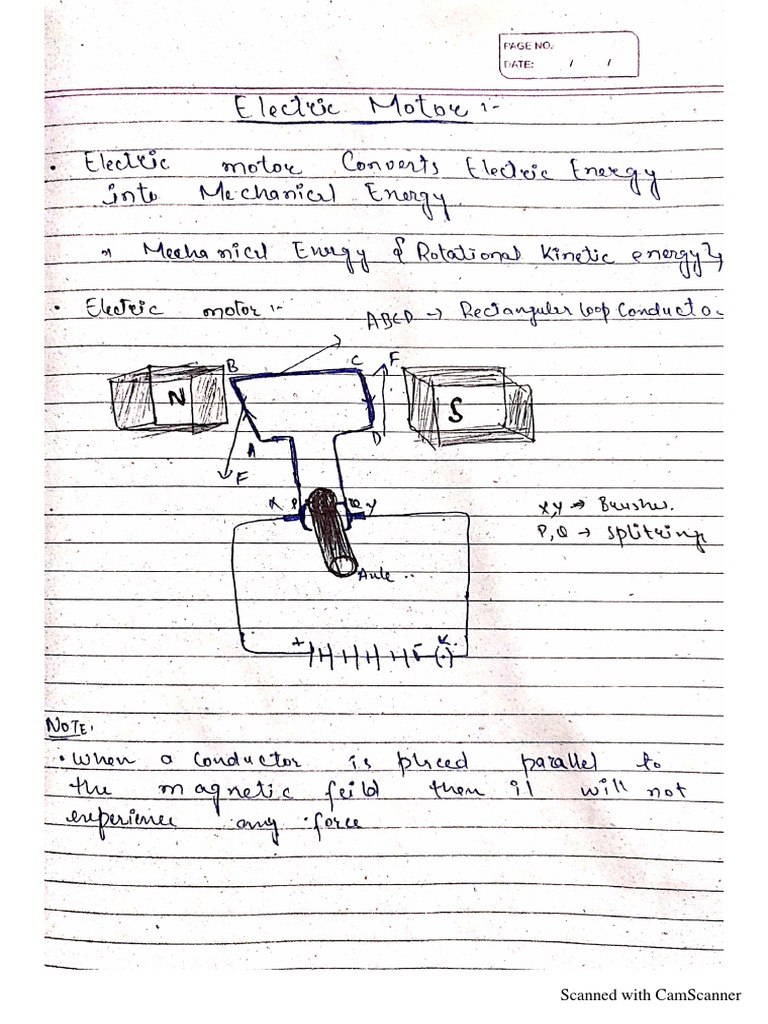 PAGE NO.
DATE: / /
Electric Motor :-
• Electric motor Converts Electric Energy
into Mechanical Energy
Mechanical Energy { Rotational Kinetic energy }
• Electric motor :-
ABCD → Rectanguler loop Conducto
B C F
N S
A D
F
X P Q Y
X,Y → Brushes.
P,Q → Splitring
Axle ..
+ - K.
(.)
NOTE.
• When a conductor is placed parallel to
the magnetic feild then it will not
experience any force
Scanned with CamScanner